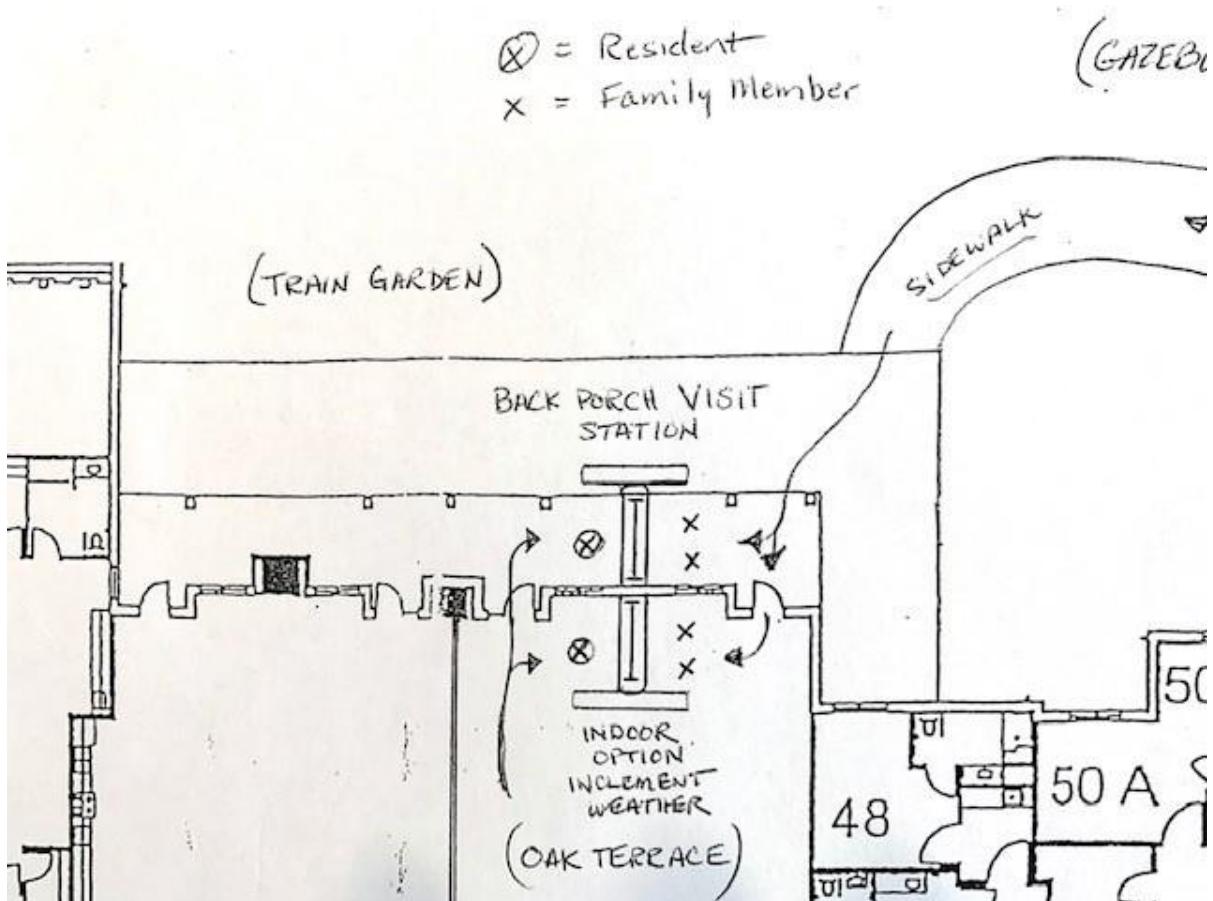 ⓧ = Resident
x = Family Member
(GAZEB
SIDEWALK
(TRAIN GARDEN)
BACK PORCH VISIT
STATION
INDOOR
OPTION
INCLEMENT
WEATHER
(OAK TERRACE)
48
50 A
50